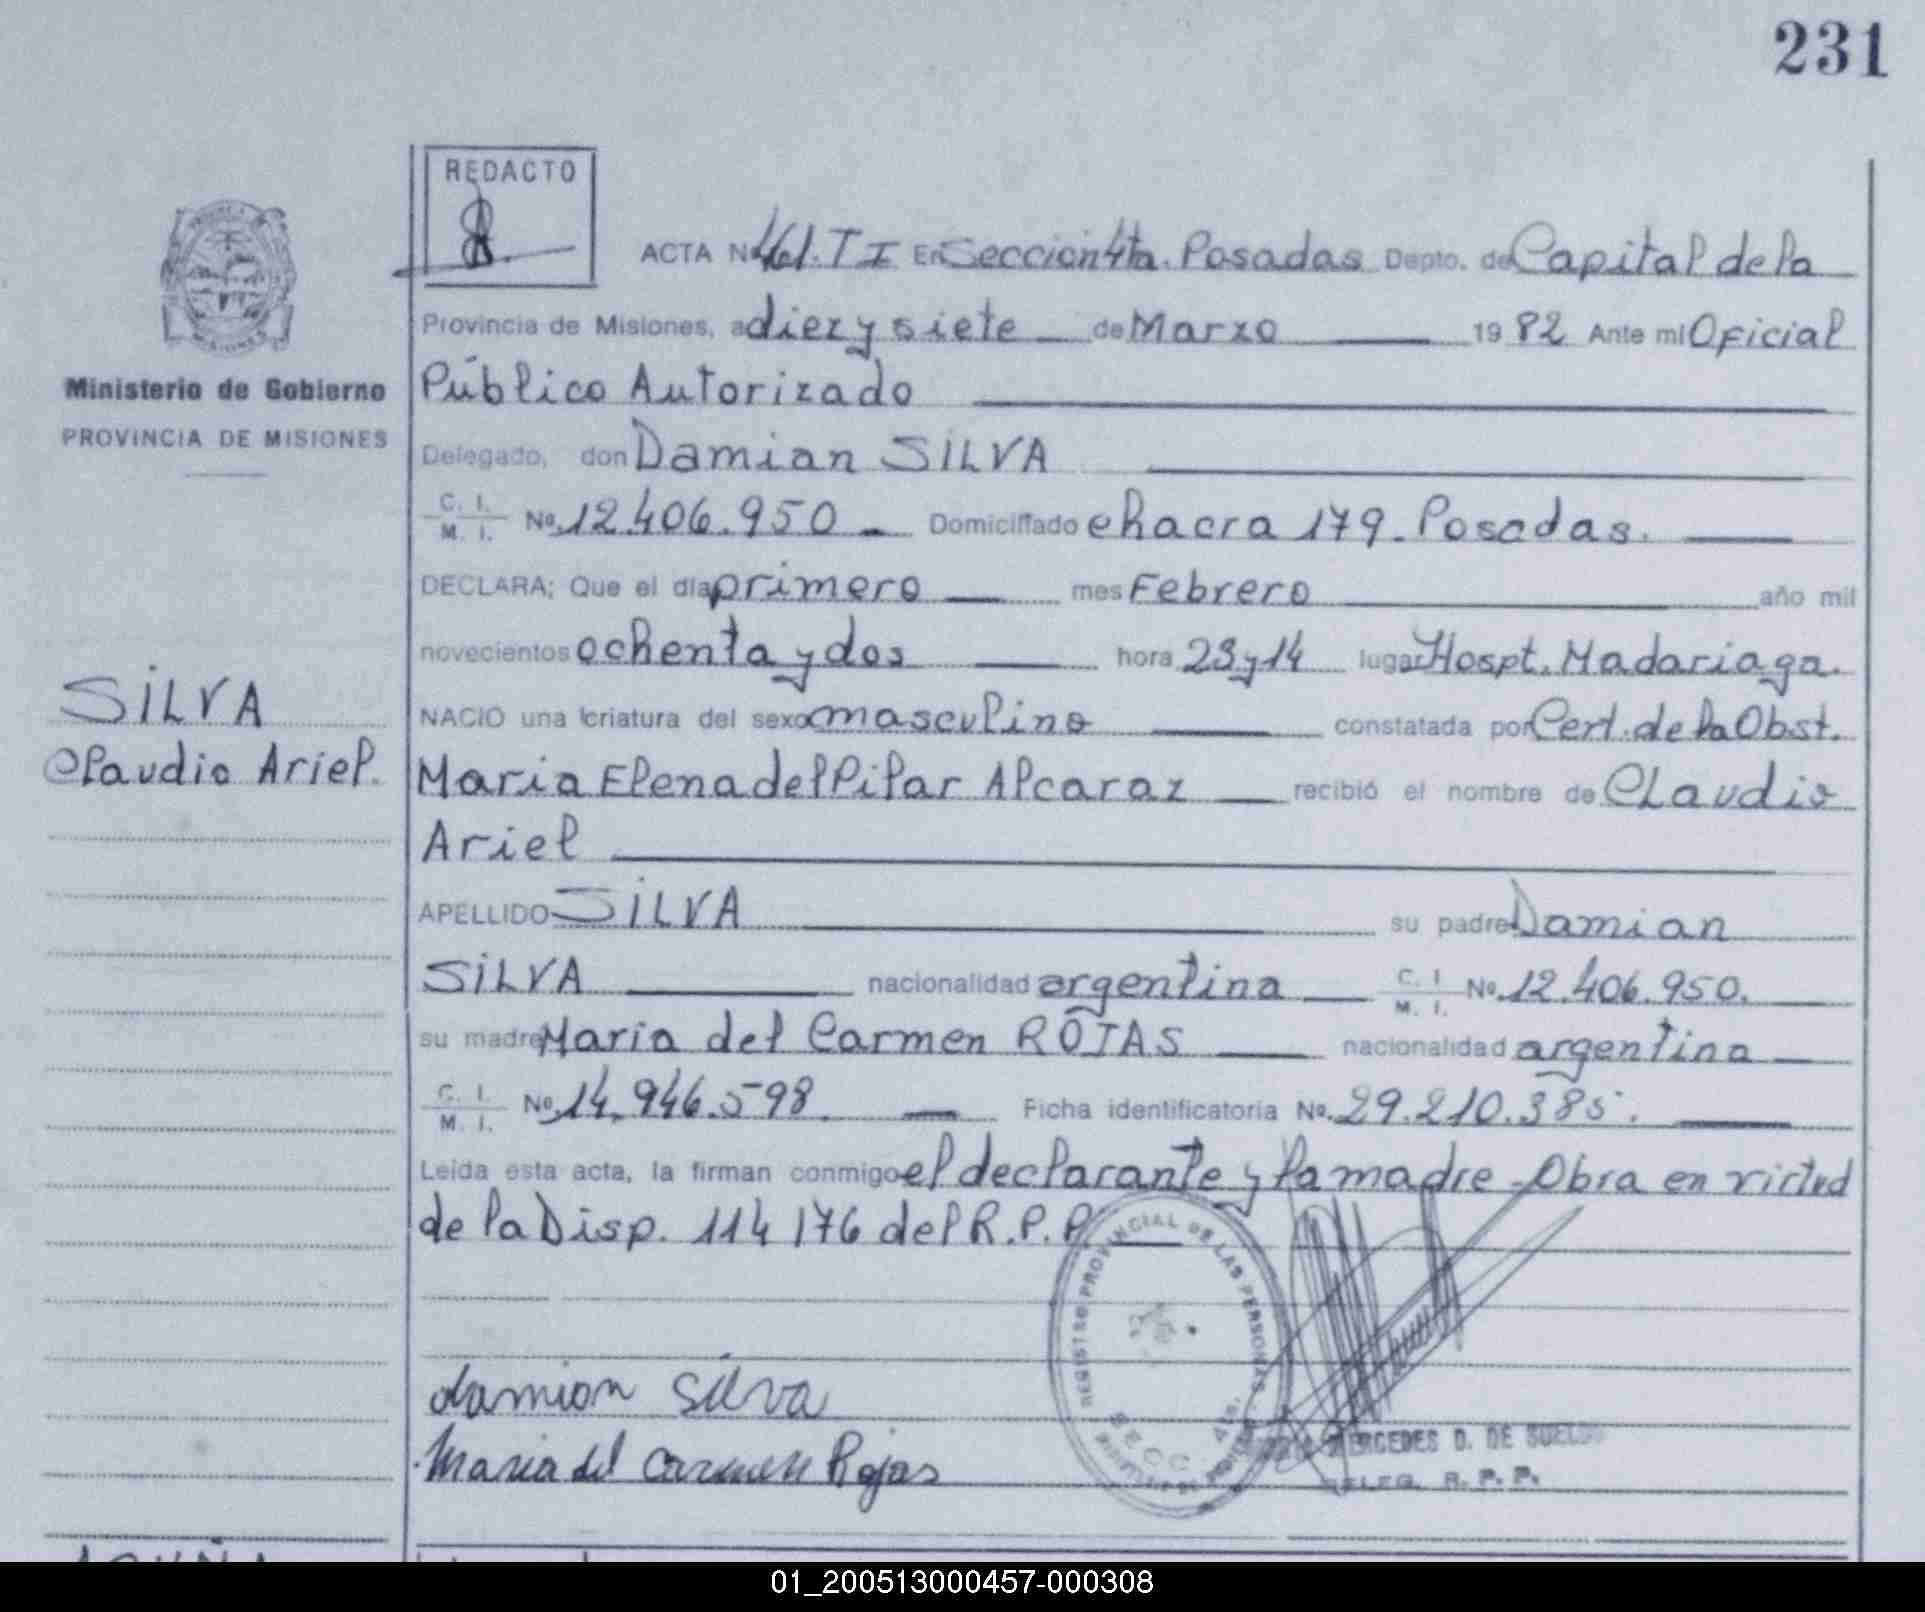 231
REDACTO
ACTA Nº 461. T I En Seccion 4ta. Posadas Depto. de Capital de la
Provincia de Misiones, a diez y siete de Marzo 19 82 Ante mi Oficial
Ministerio de Gobierno
Público Autorizado
PROVINCIA DE MISIONES
Delegado, don Damian SILVA
C. I. M. I. Nº 12.406.950 Domiciliado chacra 179. Posadas.
DECLARA; Que el día primero mes Febrero año mil
novecientos ochenta y dos hora 23 y 14 lugar Hospt. Madariaga.
SILVA
NACIO una criatura del sexo masculino constatada por Cert. de la Obst.
Claudio Ariel.
Maria Elena del Pilar Alcaraz recibió el nombre de Claudio
Ariel
APELLIDO SILVA su padre Damian
SILVA nacionalidad argentina C. I. M. I. Nº 12.406.950.
su madre Maria del Carmen ROJAS nacionalidad argentina
C. I. M. I. Nº 14.946.598. Ficha identificatoria Nº 29.210.385.
Leida esta acta, la firman conmigo el declarante y la madre - Obra en virtud
de la Disp. 114/76 del R.P.P.
REGISTRO PROVINCIAL DE LAS PERSONAS
SECC. 4ta.
damian silva
Maria del Carmen Rojas
MERCEDES D. DE SUELDO
DELEG. R. P. P.
01_200513000457-000308